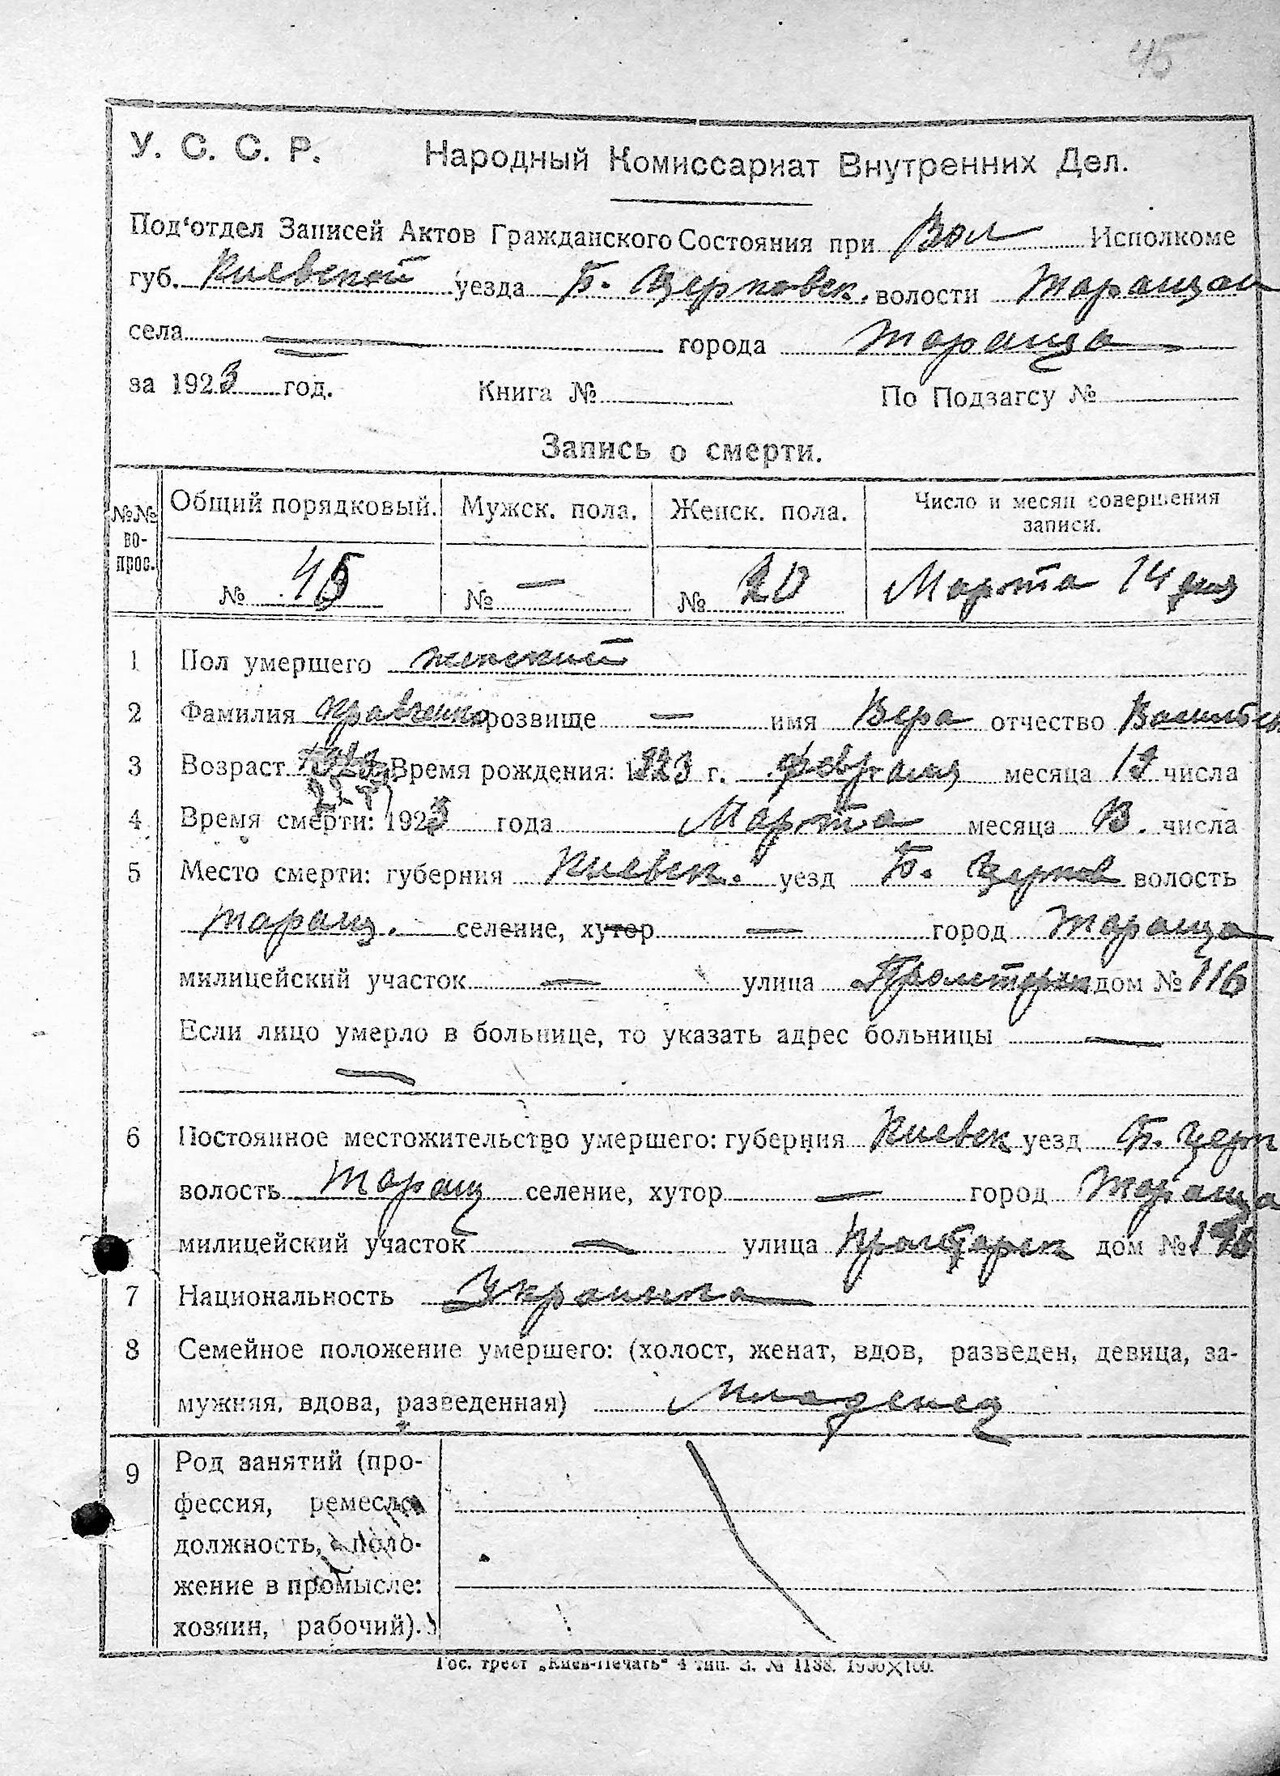 45
У. С. С. Р. Народный Комиссариат Внутренних Дел.
Под'отдел Записей Актов Гражданского Состояния при Вол Исполкоме
губ. Киевской уезда Б. Церковск. волости Таращан
села — города Тараща
за 1923 год. Книга № По Подзагсу №
Запись о смерти.
№№ во-прос. Общий порядковый. Мужск. пола. Женск. пола. Число и месяц совершения записи.
№ 45 № — № 20 Марта 14 дня
1 Пол умершего женский
2 Фамилия Кравченко прозвище — имя Вера отчество Васильев
3 Возраст Время рождения: 1923 г. февраля месяца 19 числа
4 Время смерти: 1923 года Марта месяца 13. числа
5 Место смерти: губерния Киевск. уезд Б. Церков волость
Таращ. селение, хутор — город Тараща
милицейский участок — улица Пролетарск дом № 116
Если лицо умерло в больнице, то указать адрес больницы —
—
6 Постоянное местожительство умершего: губерния Киевск уезд Б. Церк
волость Таращ селение, хутор — город Тараща
милицейский участок — улица Пролетарск дом №
7 Национальность Украинка
8 Семейное положение умершего: (холост, женат, вдов, разведен, девица, за-
мужняя, вдова, разведенная) Младенец
9 Род занятий (про-
фессия, ремесло,
должность, поло-
жение в промысле:
хозяин, рабочий).
Гос. трест „Киев-Печать“ 4 тип. З. № 1138. 1900×100.